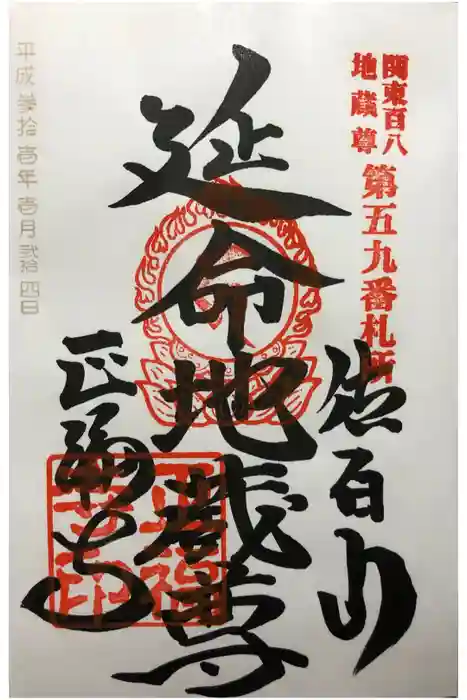 関東百八
地蔵尊
第五九番札所
佐百山
延命地蔵尊
正福寺
正福
寺印
平成参拾壱年壱月弐拾四日